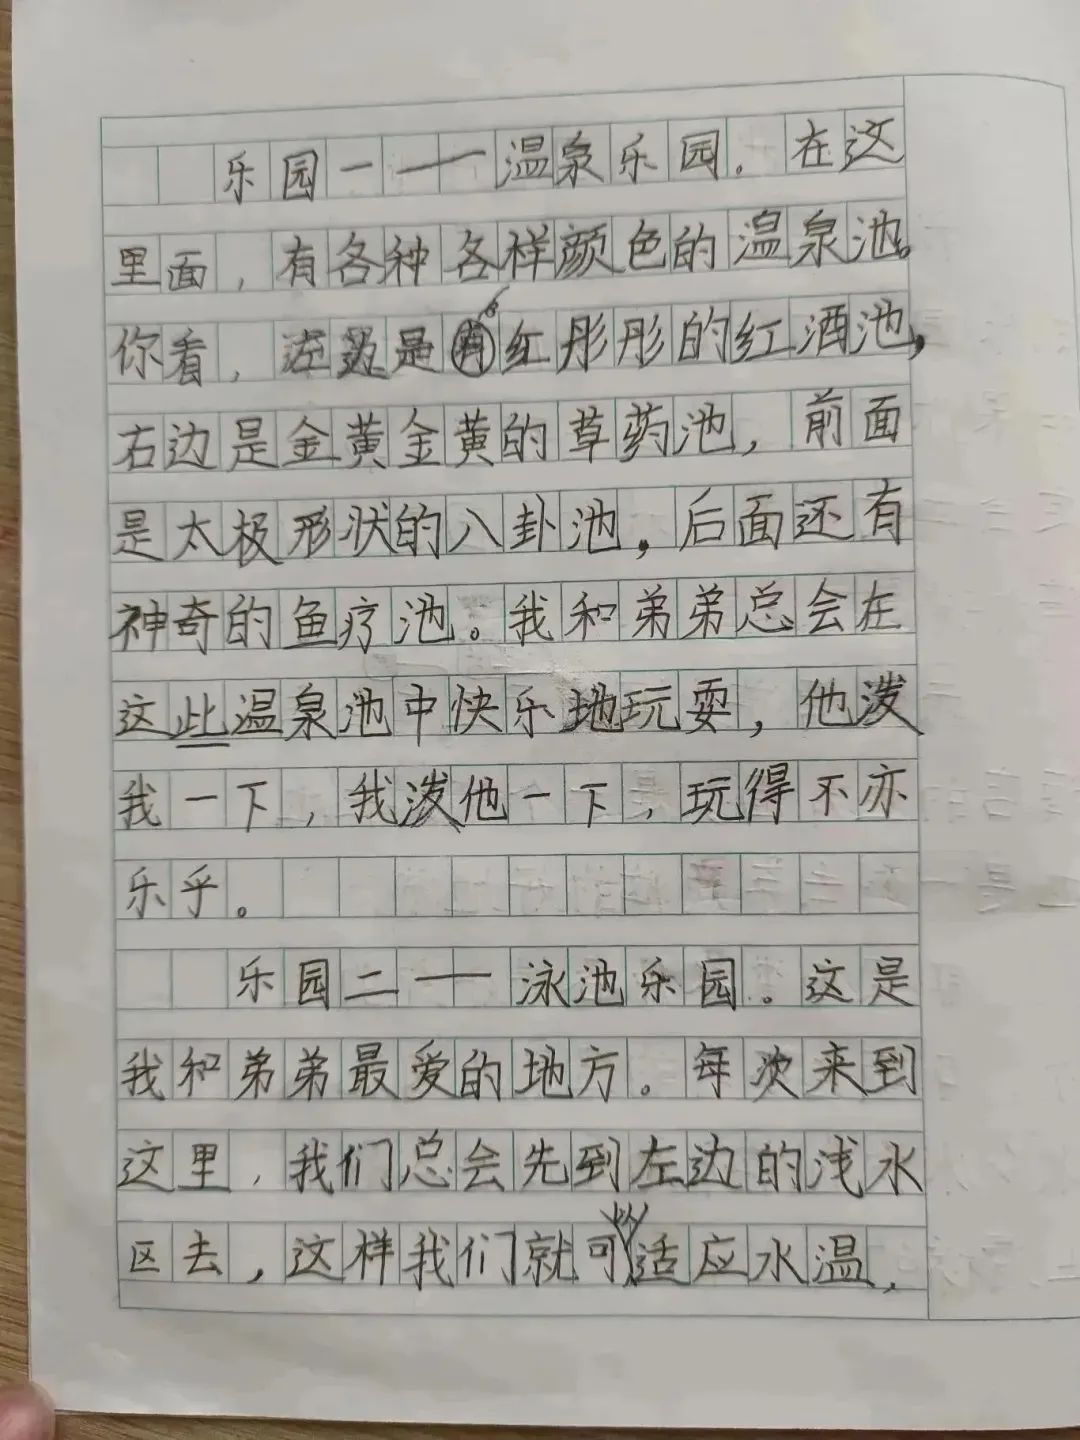 乐园一——温泉乐园。在这
里面，有各种各样颜色的温泉池。
你看，左边是红彤彤的红酒池，
右边是金黄金黄的草药池，前面
是太极形状的八卦池，后面还有
神奇的鱼疗池。我和弟弟总会在
这些温泉池中快乐地玩耍，他泼
我一下，我泼他一下，玩得不亦
乐乎。
乐园二——泳池乐园。这是
我和弟弟最爱的地方。每次来到
这里，我们总会先到左边的浅水
区去，这样我们就可以适应水温，